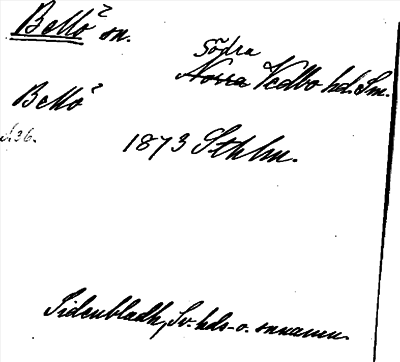 Bellö² sn.
Södra
Norra Vedbo hd. Sm.
Bellö²
s. 36.
1873 Sthlm.
Sidenbladh, Sv. hds- o. snnamn